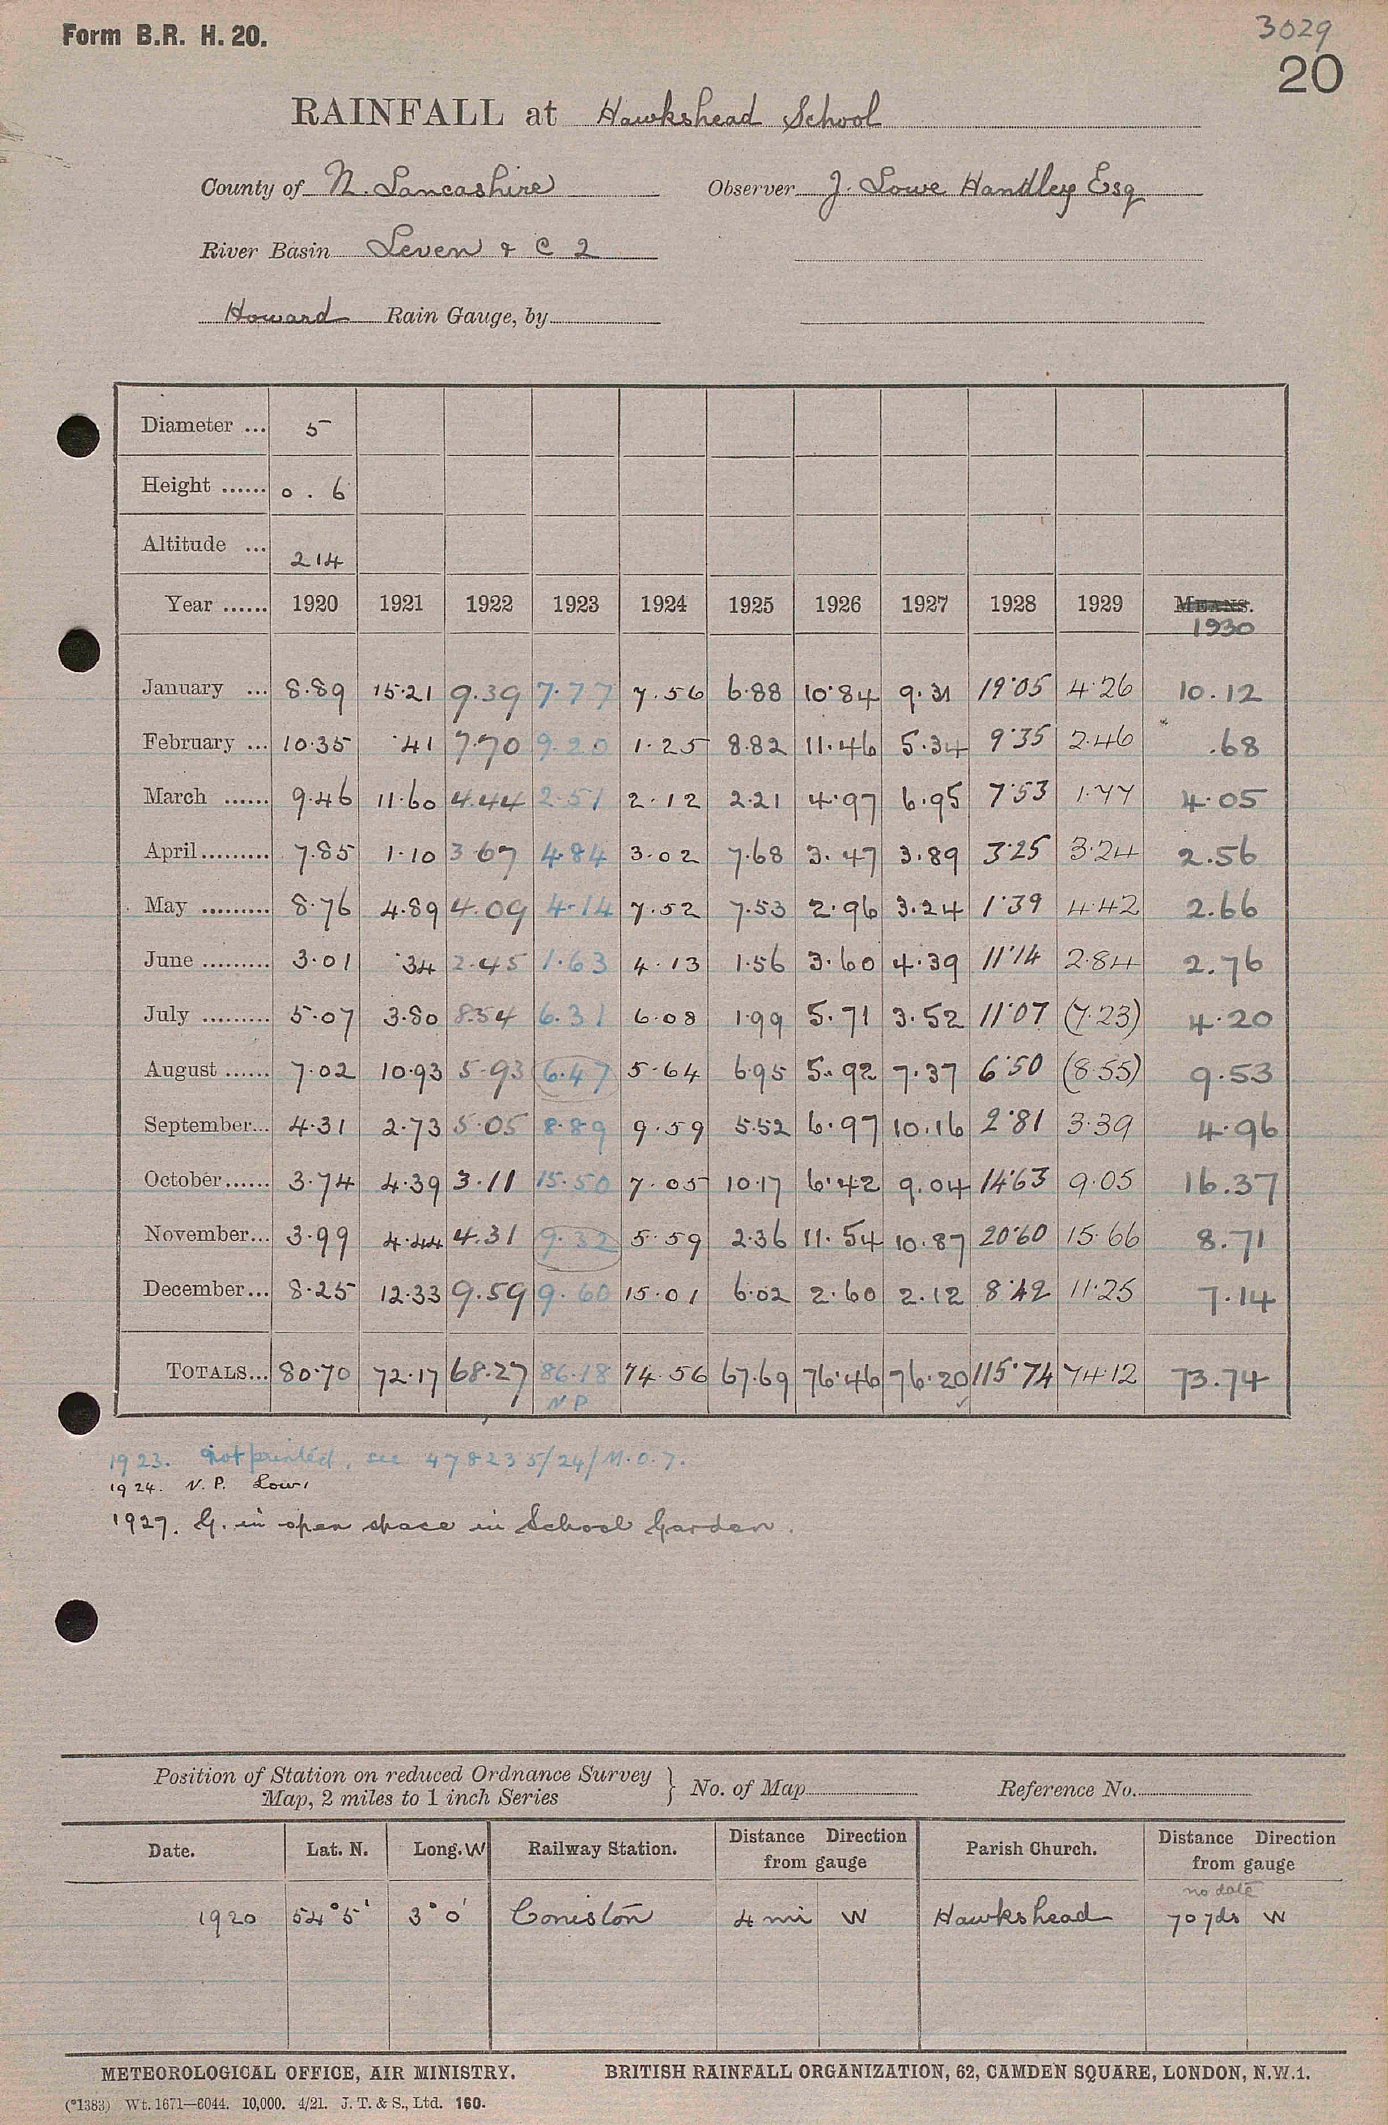 Form B.R. H. 20.
3029
20
RAINFALL at Hawkshead School
County of N. Lancashire Observer J. Lowe Handley Esq
River Basin Leven & C 2
Howard Rain Gauge, by
Diameter ... 5
Height ...... 0 . 6
Altitude ... 214
Year ...... 1920 1921 1922 1923 1924 1925 1926 1927 1928 1929 MEANS. 1930
January ... 8.89 15.21 9.39 7.77 7.56 6.88 10.84 9.31 19.05 4.26 10.12
February ... 10.35 .41 7.70 9.20 1.25 8.82 11.46 5.34 9.35 2.46 .68
March ...... 9.46 11.60 4.44 2.51 2.12 2.21 4.97 6.95 7.53 1.77 4.05
April......... 7.85 1.10 3.67 4.84 3.02 7.68 3.47 3.89 3.25 3.24 2.56
May ......... 8.76 4.89 4.09 4.14 7.52 7.53 2.96 3.24 1.39 4.42 2.66
June ......... 3.01 .34 2.45 1.63 4.13 1.56 3.60 4.39 11.14 2.84 2.76
July ......... 5.07 3.80 8.54 6.31 6.08 1.99 5.71 3.52 11.07 (7.23) 4.20
August ...... 7.02 10.93 5.93 6.47 5.64 6.95 5.92 7.37 6.50 (8.55) 9.53
September... 4.31 2.73 5.05 8.89 9.59 5.52 6.97 10.16 2.81 3.39 4.96
October...... 3.74 4.39 3.11 15.50 7.05 10.17 6.42 9.04 14.63 9.05 16.37
November... 3.99 4.44 4.31 9.32 5.59 2.36 11.54 10.87 20.60 15.66 8.71
December... 8.25 12.33 9.59 9.60 15.01 6.02 2.60 2.12 8.42 11.25 7.14
TOTALS... 80.70 72.17 68.27 86.18 74.56 67.69 76.46 76.20 115.74 74.12 73.74
N P
1923. Not printed, see 478235/24/M.O.7.
1924. N.P. Low.
1927. G. in open space in School Garden.
Position of Station on reduced Ordnance Survey Map, 2 miles to 1 inch Series } No. of Map Reference No.
Date. Lat. N. Long. W Railway Station. Distance Direction from gauge Parish Church. Distance Direction from gauge
no date
1920 54°5' 3°0' Coniston 4 mi W Hawkshead 70 yds W
METEOROLOGICAL OFFICE, AIR MINISTRY. BRITISH RAINFALL ORGANIZATION, 62, CAMDEN SQUARE, LONDON, N.W.1.
(*1383) Wt. 1671—6044. 10,000. 4/21. J. T. & S., Ltd. 160.